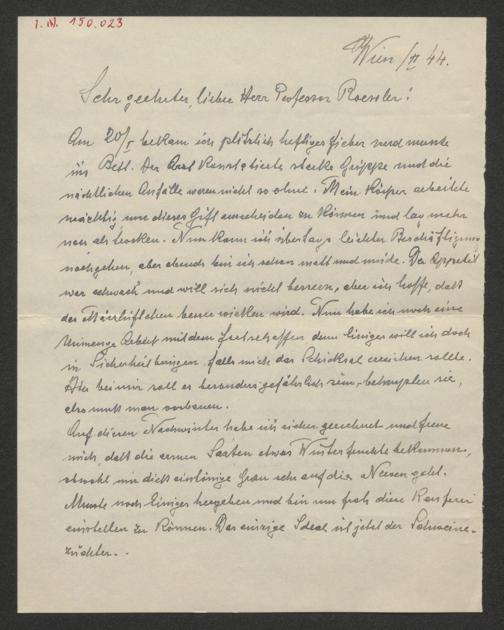 I. N. 150.023
Wien /II 44.
Sehr geehrter, lieber Herr Professor Roessler!
Am 20/I bekam ich plötzlich heftiges Fieber und musste
ins Bett. Der Arzt konstatierte starke Grippe und die
nächtlichen Anfälle waren nicht so ohne. Mein Körper arbeitete
mächtig, um dieses Gift ausscheiden zu können und lag mehr
nass als trocken. Nun kann ich übertags leichter Beschäftigung
nachgehen, aber abends bin ich schon matt und müde. Der Appetit
war schwach und will sich nicht bessern, aber ich hoffe, daß
das Märzlüftchen besser wirken wird. Nun habe ich noch eine
Unmenge Arbeit mit dem Fortschaffen denn Einiges will ich doch
in Sicherheit bringen falls mich das Schicksal erreichen sollte.
bei mir soll es besonders gefährlich sein, behaupten sie,
also muß man vorbauen.
Auf diesen Nachwinter habe ich sicher gerechnet und freue
mich, daß die armen Saaten etwas Winterfeuchte bekommen,
obwohl mir dies eintönige Grau sehr auf die Nerven geht.
Musste noch Einiges hergeben und bin nun froh diese
einstellen zu können. Das einzige Ideal ist jetzt der Schweine-
züchter. -